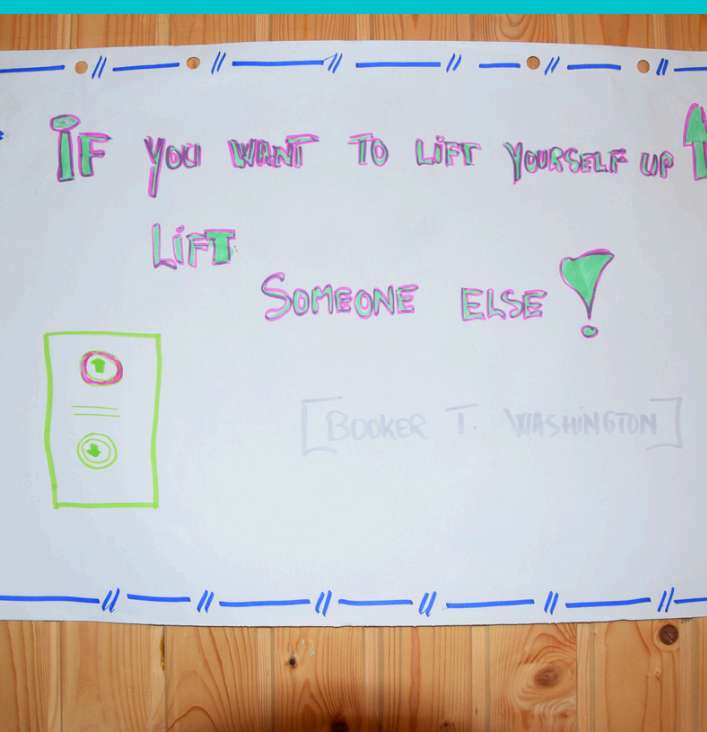 IF YOU WANT TO LIFT YOURSELF UP
LIFT
SOMEONE ELSE!
[BOOKER T. WASHINGTON]